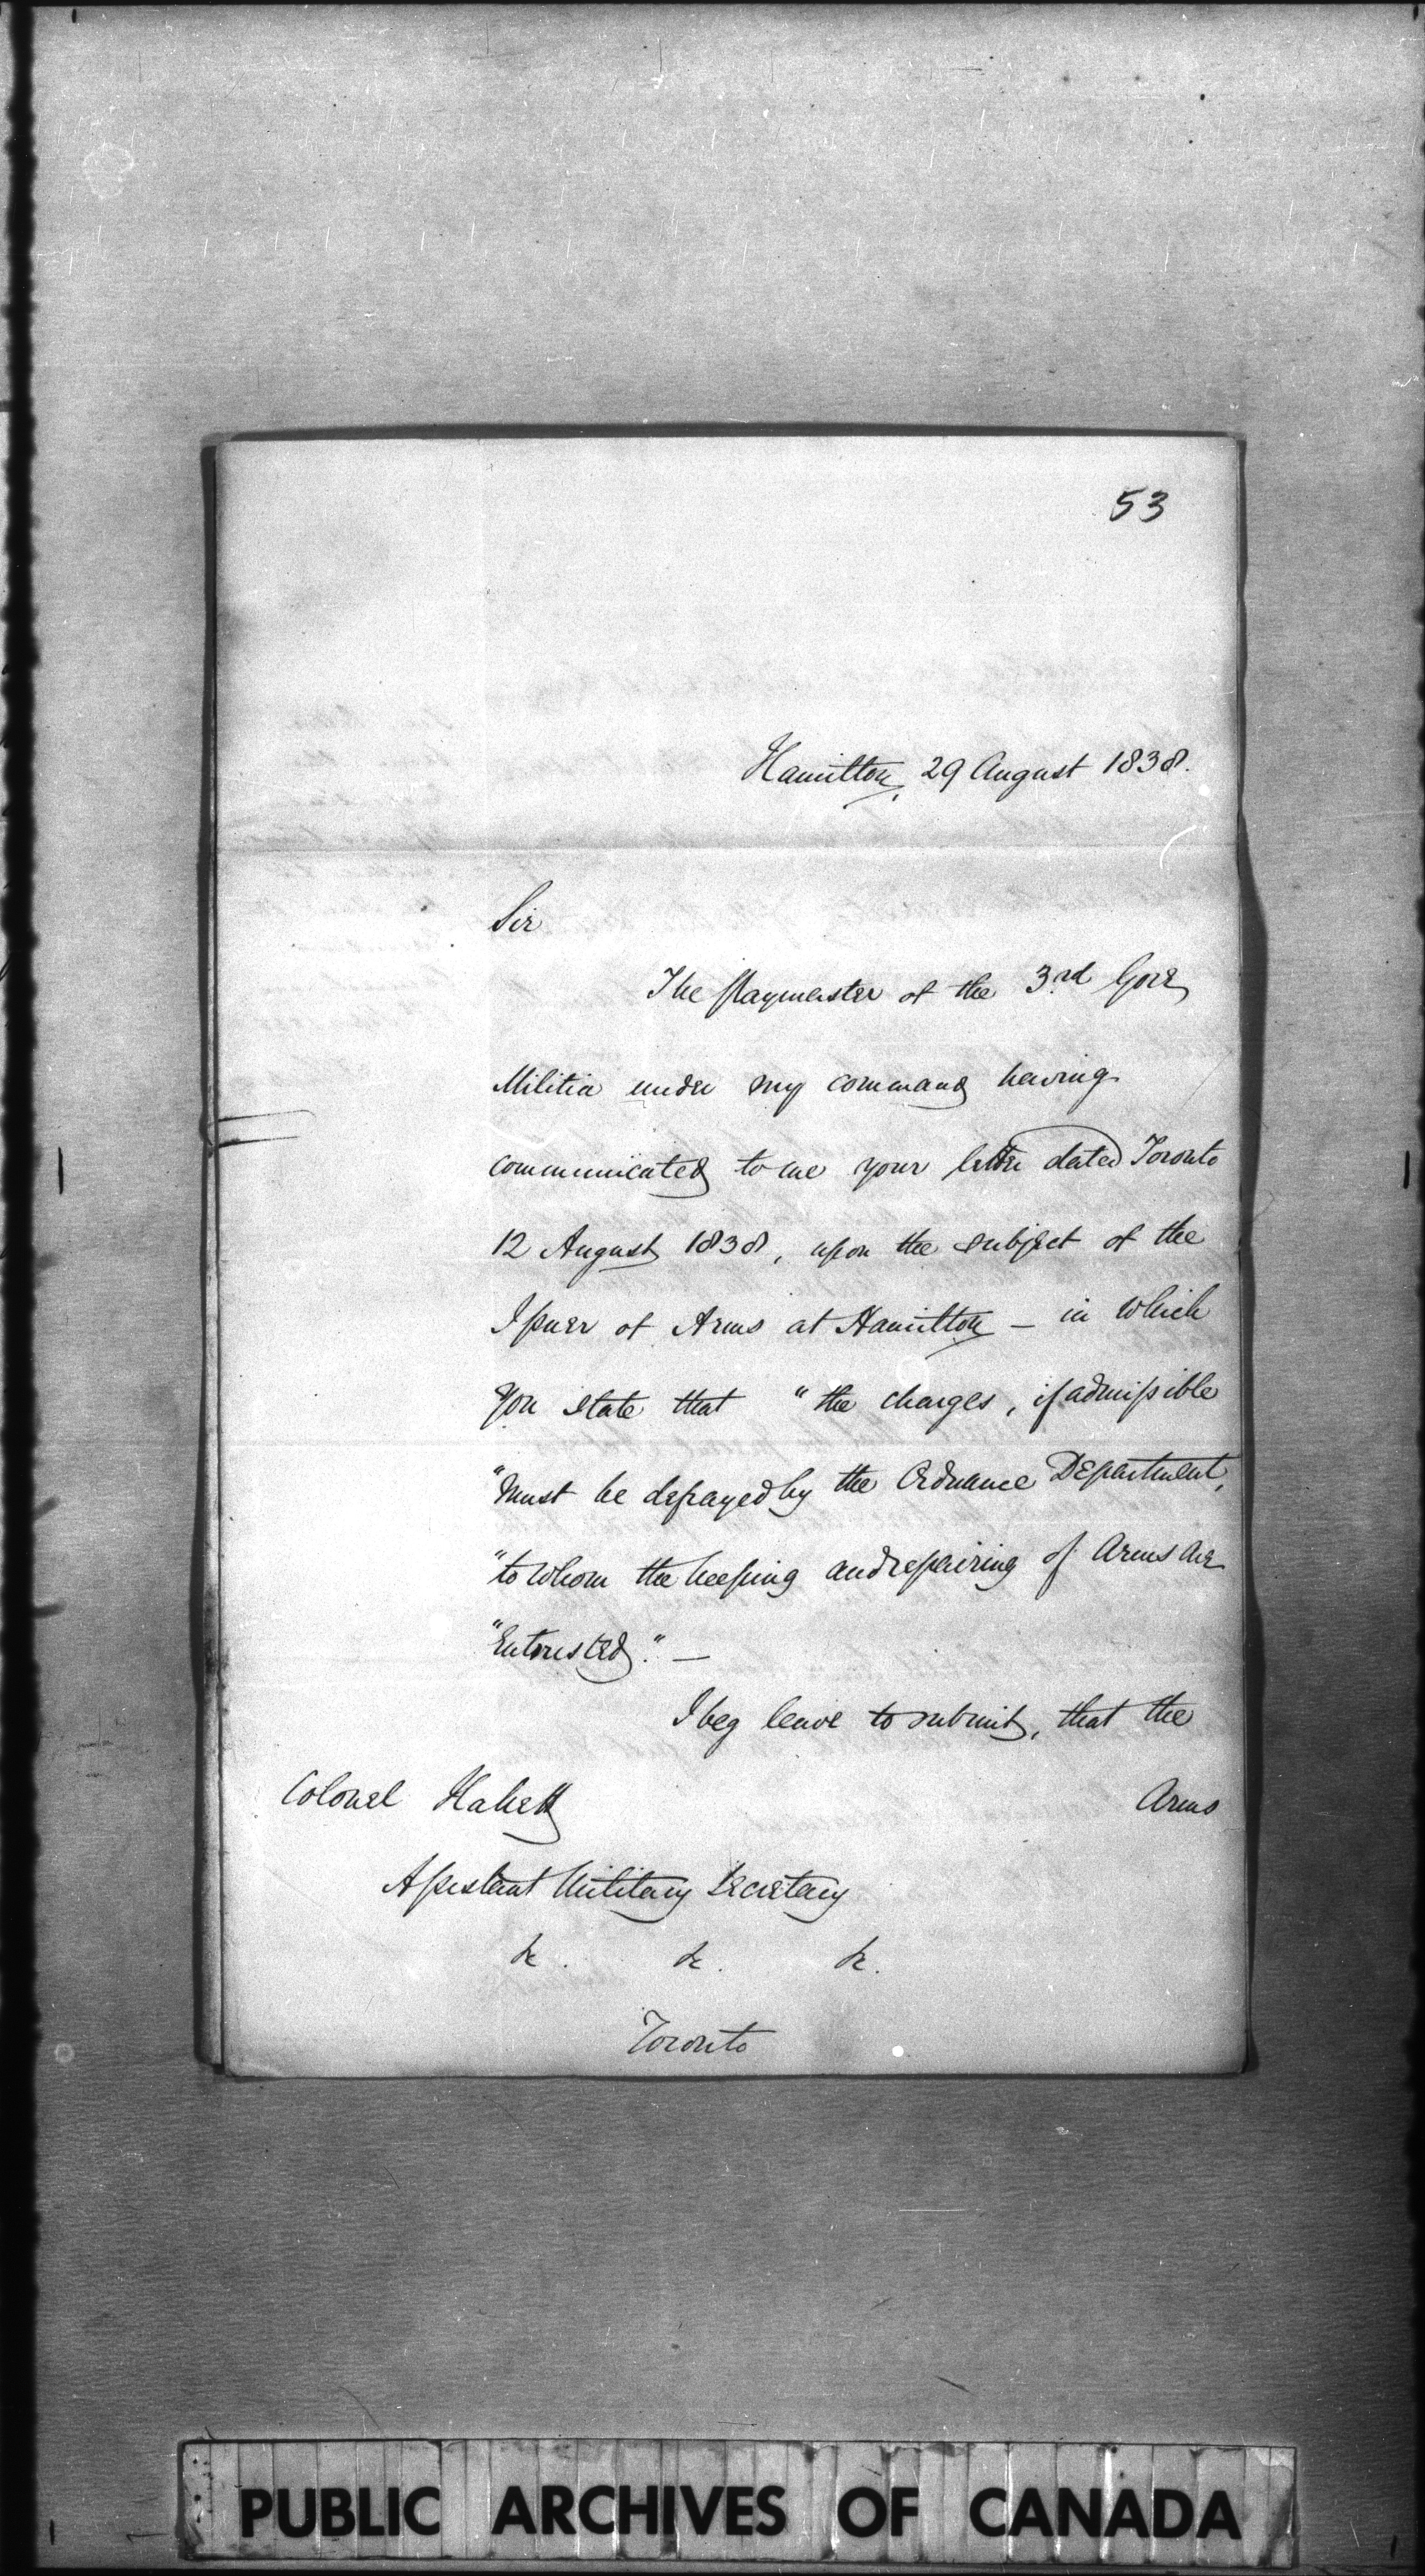 53
Hamilton, 29 August 1838.
Sir
The Paymaster of the 3rd Gore
Militia under my command having
communicated to me your letter dated Toronto
12 August 1838, upon the subject of the
Issuer of Arms at Hamilton – in which
You state that "the charges, if admissible
"must be defrayed by the Ordnance Department,
"to whom the keeping and repairing of Arms are
"Entrusted." –
I beg leave to submit, that the
Arms
Colonel Halkett
Assistant Military Secretary
&c. &c. &c.
Toronto
PUBLIC ARCHIVES OF CANADA